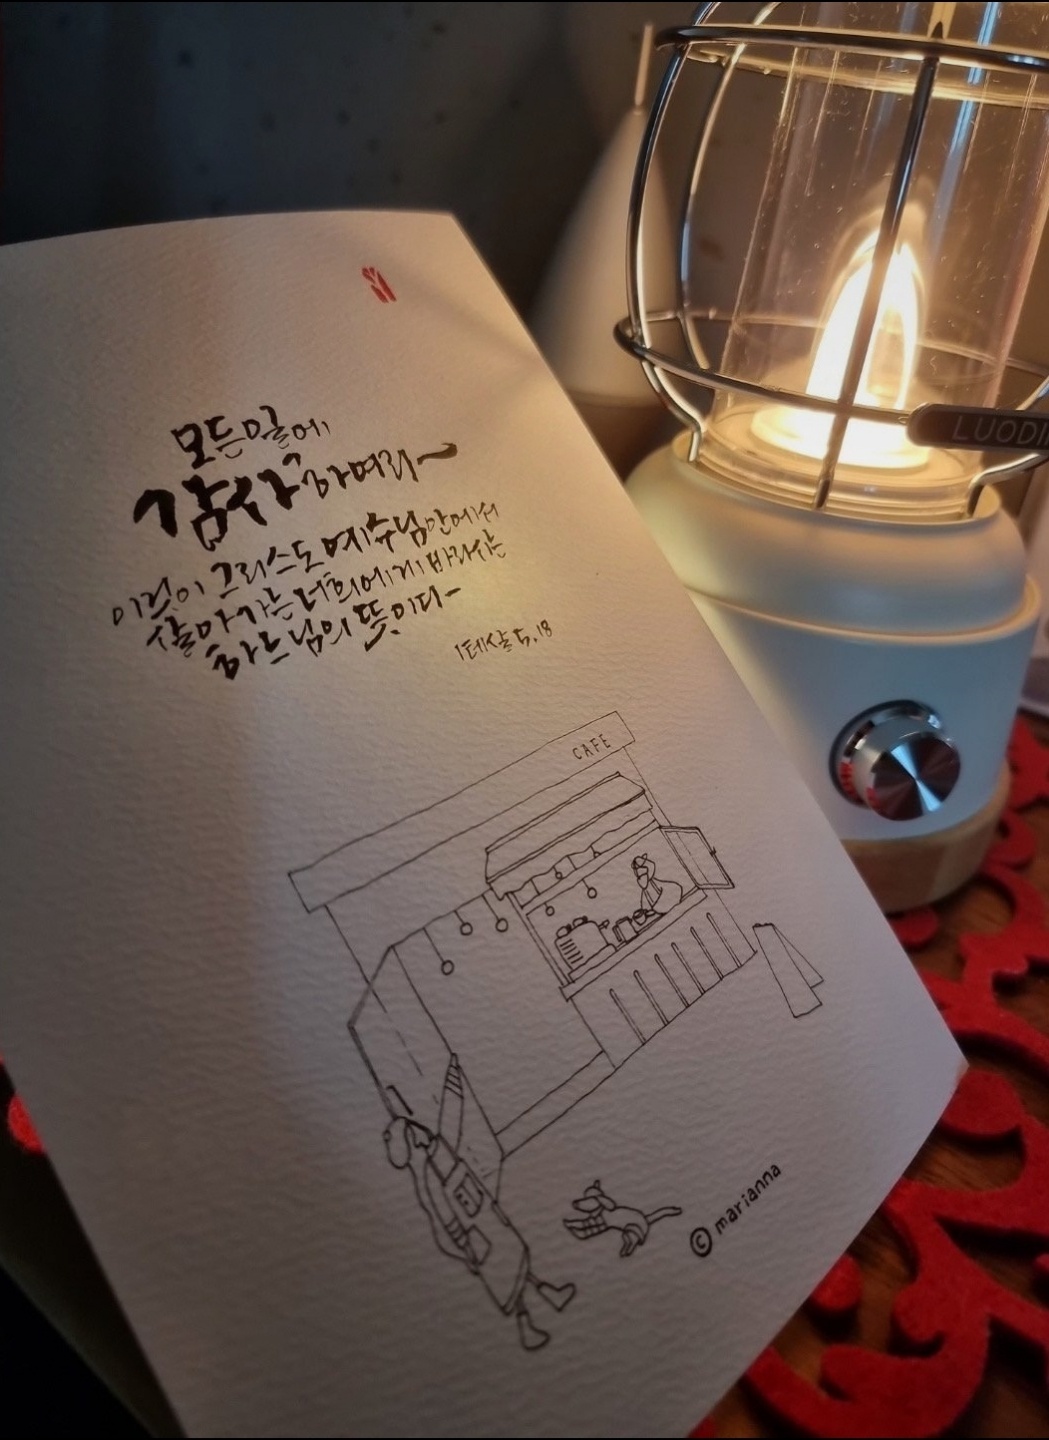 모든일에
감사하여라~
이것이 그리스도 예수님안에서
살아가는 너희에게 바라시는
하느님의 뜻이다-
1테살 5,18
CAFE
© marianna
LUODI